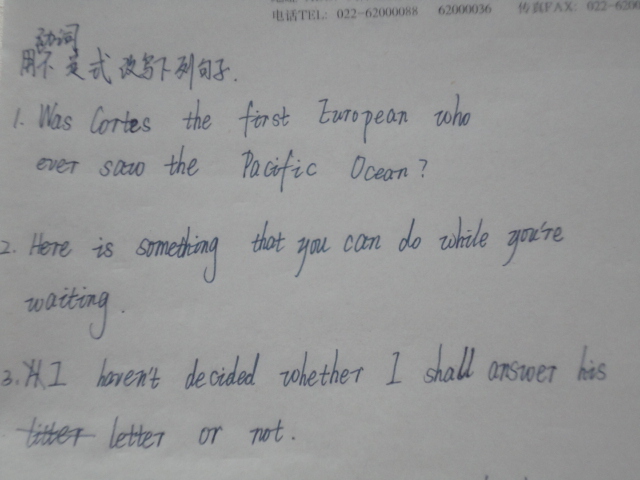 电话TEL: 022-62000088 62000036 传真FAX: 022-6200
动词
用不定式改写下列句子.
1. Was Cortes the first European who
ever saw the Pacific Ocean?
2. Here is something that you can do while you're
waiting.
3. I haven't decided whether I shall answer his
letter or not.